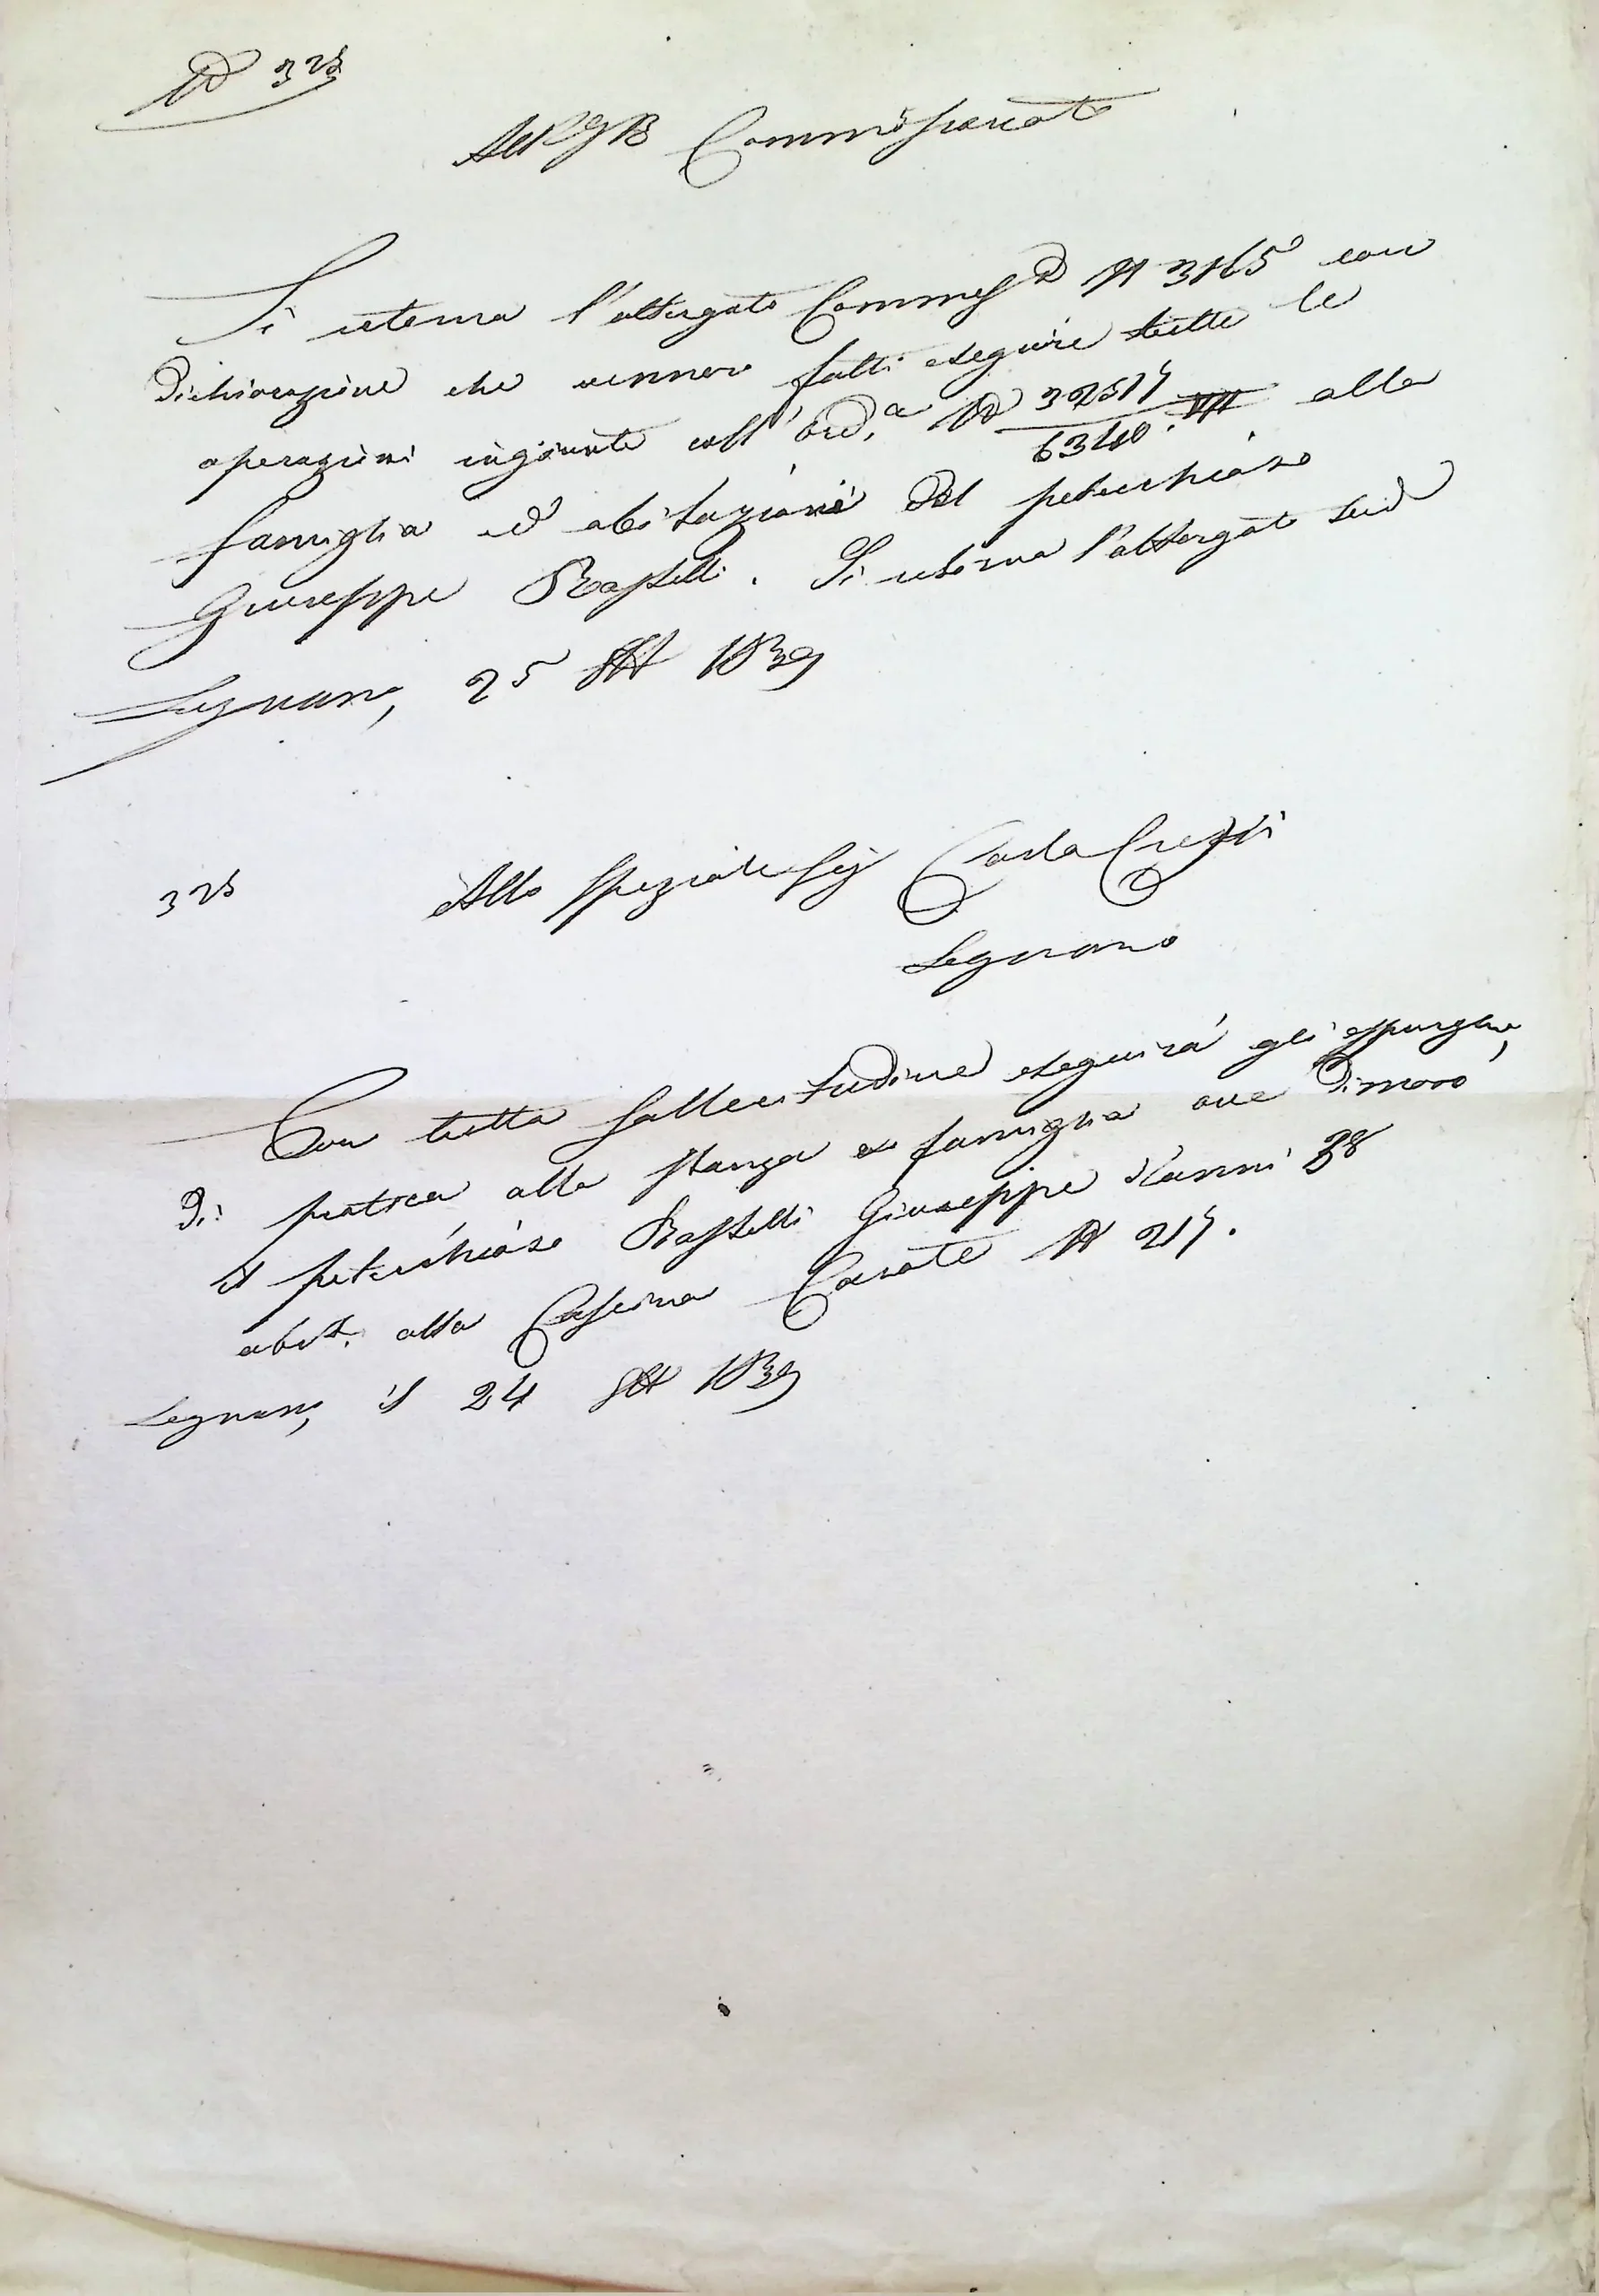 N° 325
All' I R Commissariato
Si ritorna l'attergato Commess° N 3165 con
dichiarazione che vennero fatti eseguire tutte le
operazioni ingiunte coll' Ord.a N° 32517/6340. VII alla
famiglia ed abitazione del petecchioso
Giuseppe Rastelli. Si ritorna l'attergato sud°
Legnano, 25 1839
325 Allo Speziale Sig Carlo Crespi
Legnano
Con tutta sollecitudine eseguirà gli espurghi,
di pratica alla stanza e famiglia ove dimorò
il petecchioso Rastelli Giuseppe d'anni 38
abit. alla Cascina Canate N 217.
Legnano, il 24 1839